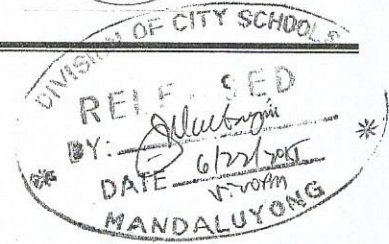 DIVISION OF CITY SCHOOLS
RELEASED
BY:
DATE 6/22/2015
MANDALUYONG